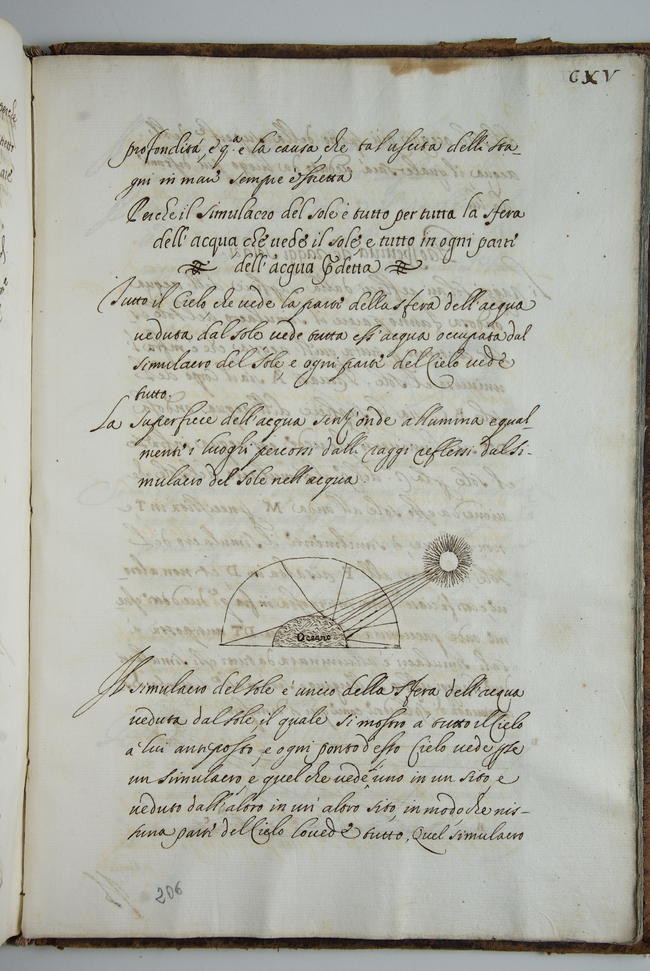 CXV
profondità, e q.ª e la causa, che tal uscita delli sta-
gni in mari sempre è stretta
Perche il simulacro del sole è tutto per tutta la sfera
dell'acqua che vede il sole, e tutto in ogni parti
dell'acqua p̃detta
Tutto il Cielo che vede la parti della sfera dell'acqua
veduta dal sole vede tutta ess'acqua occupata dal
simulacro del sole, e ogni parti del Cielo vede
tutto.
La superfice dell'acqua senz'onde allumina equal-
menti i luoghi percorsi dalli raggi reflessi dal si-
mulacro del sole nell'acqua
Oceano
Il simulacro del sole è unico della sfera dell'acqua
veduta dal sole il quale si mostro à tutto il Cielo
a lui anteposto, e ogni ponto d'esso Cielo vede
un simulacro, e quel che vede uno in un sito, e
veduto dall'altro in un' altro sito, in modo che nis-
suna parti del Cielo lo vede tutto, Quel simulacro
206